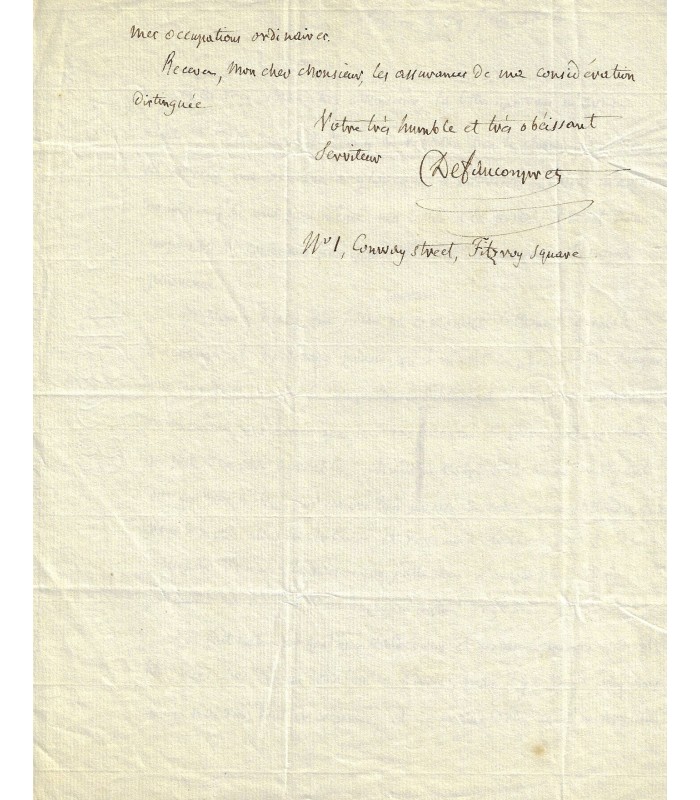 mes occupations ordinaires.
Recevez, mon cher Monsieur, les assurances de ma considération
distinguée
Votre très humble et très obéissant
Serviteur Defauconpret
N° 1, Conway street, Fitzroy square